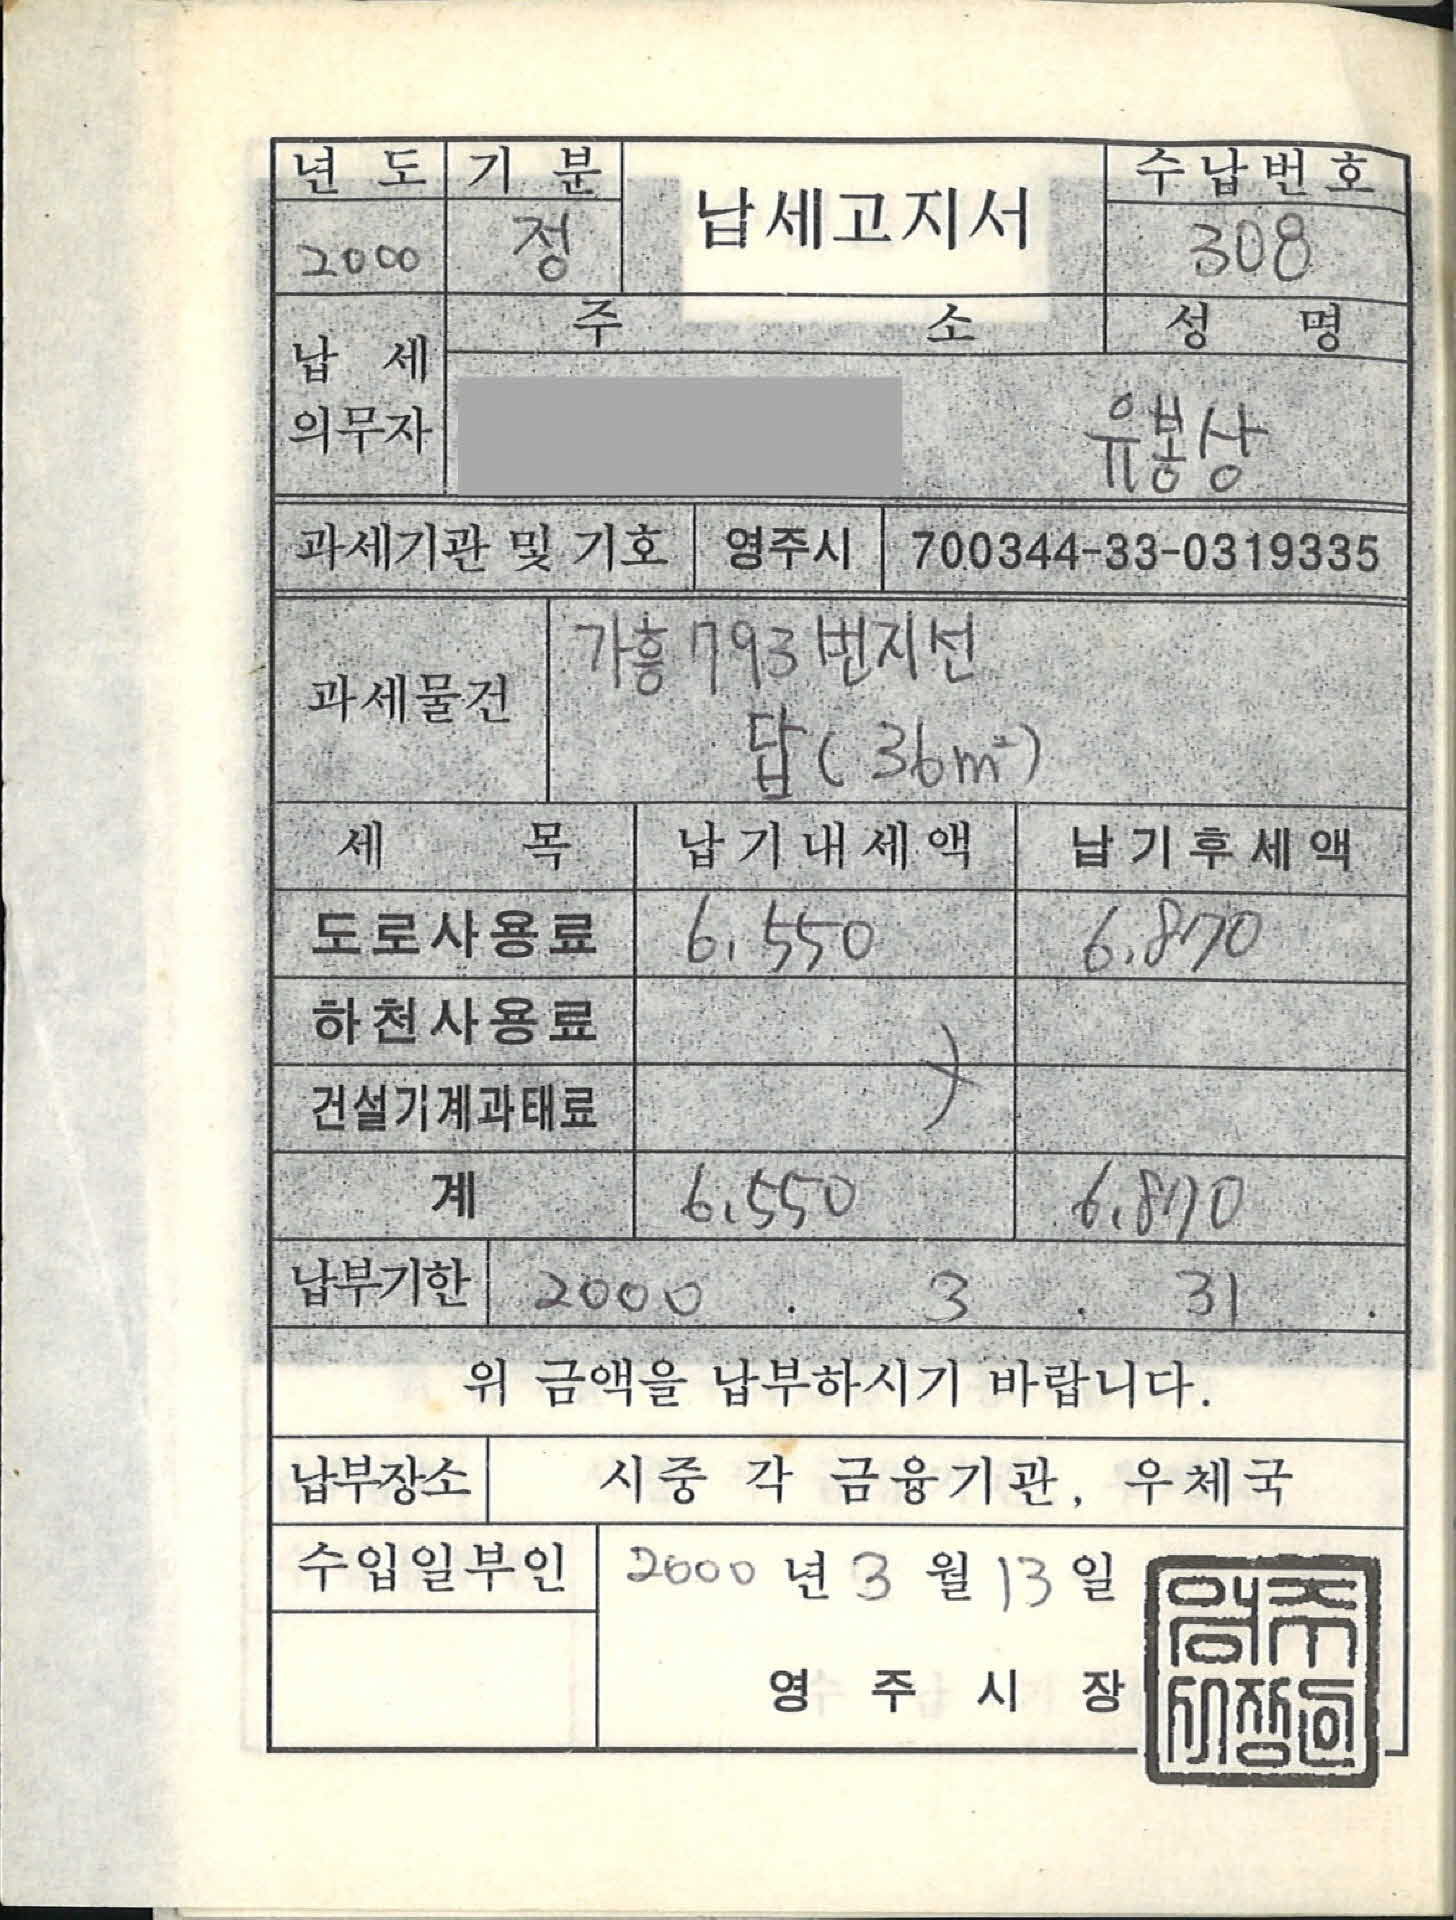 년 도 기 분 납세고지서 수납번호
2000 정 308
납 세 의무자 주 소 성 명
유봉상
과세기관 및 기호 영주시 700344-33-0319335
과세물건 가흥 793 번지선
답 (36m²)
세 목 납기내세액 납기후세액
도로사용료 6,550 6,870
하천사용료
건설기계과태료
계 6,550 6,870
납부기한 2000 . 3 . 31 .
위 금액을 납부하시기 바랍니다.
납부장소 시중 각 금융기관, 우체국
수입일부인 2000 년 3 월 13 일
영 주 시 장
영주
시장인